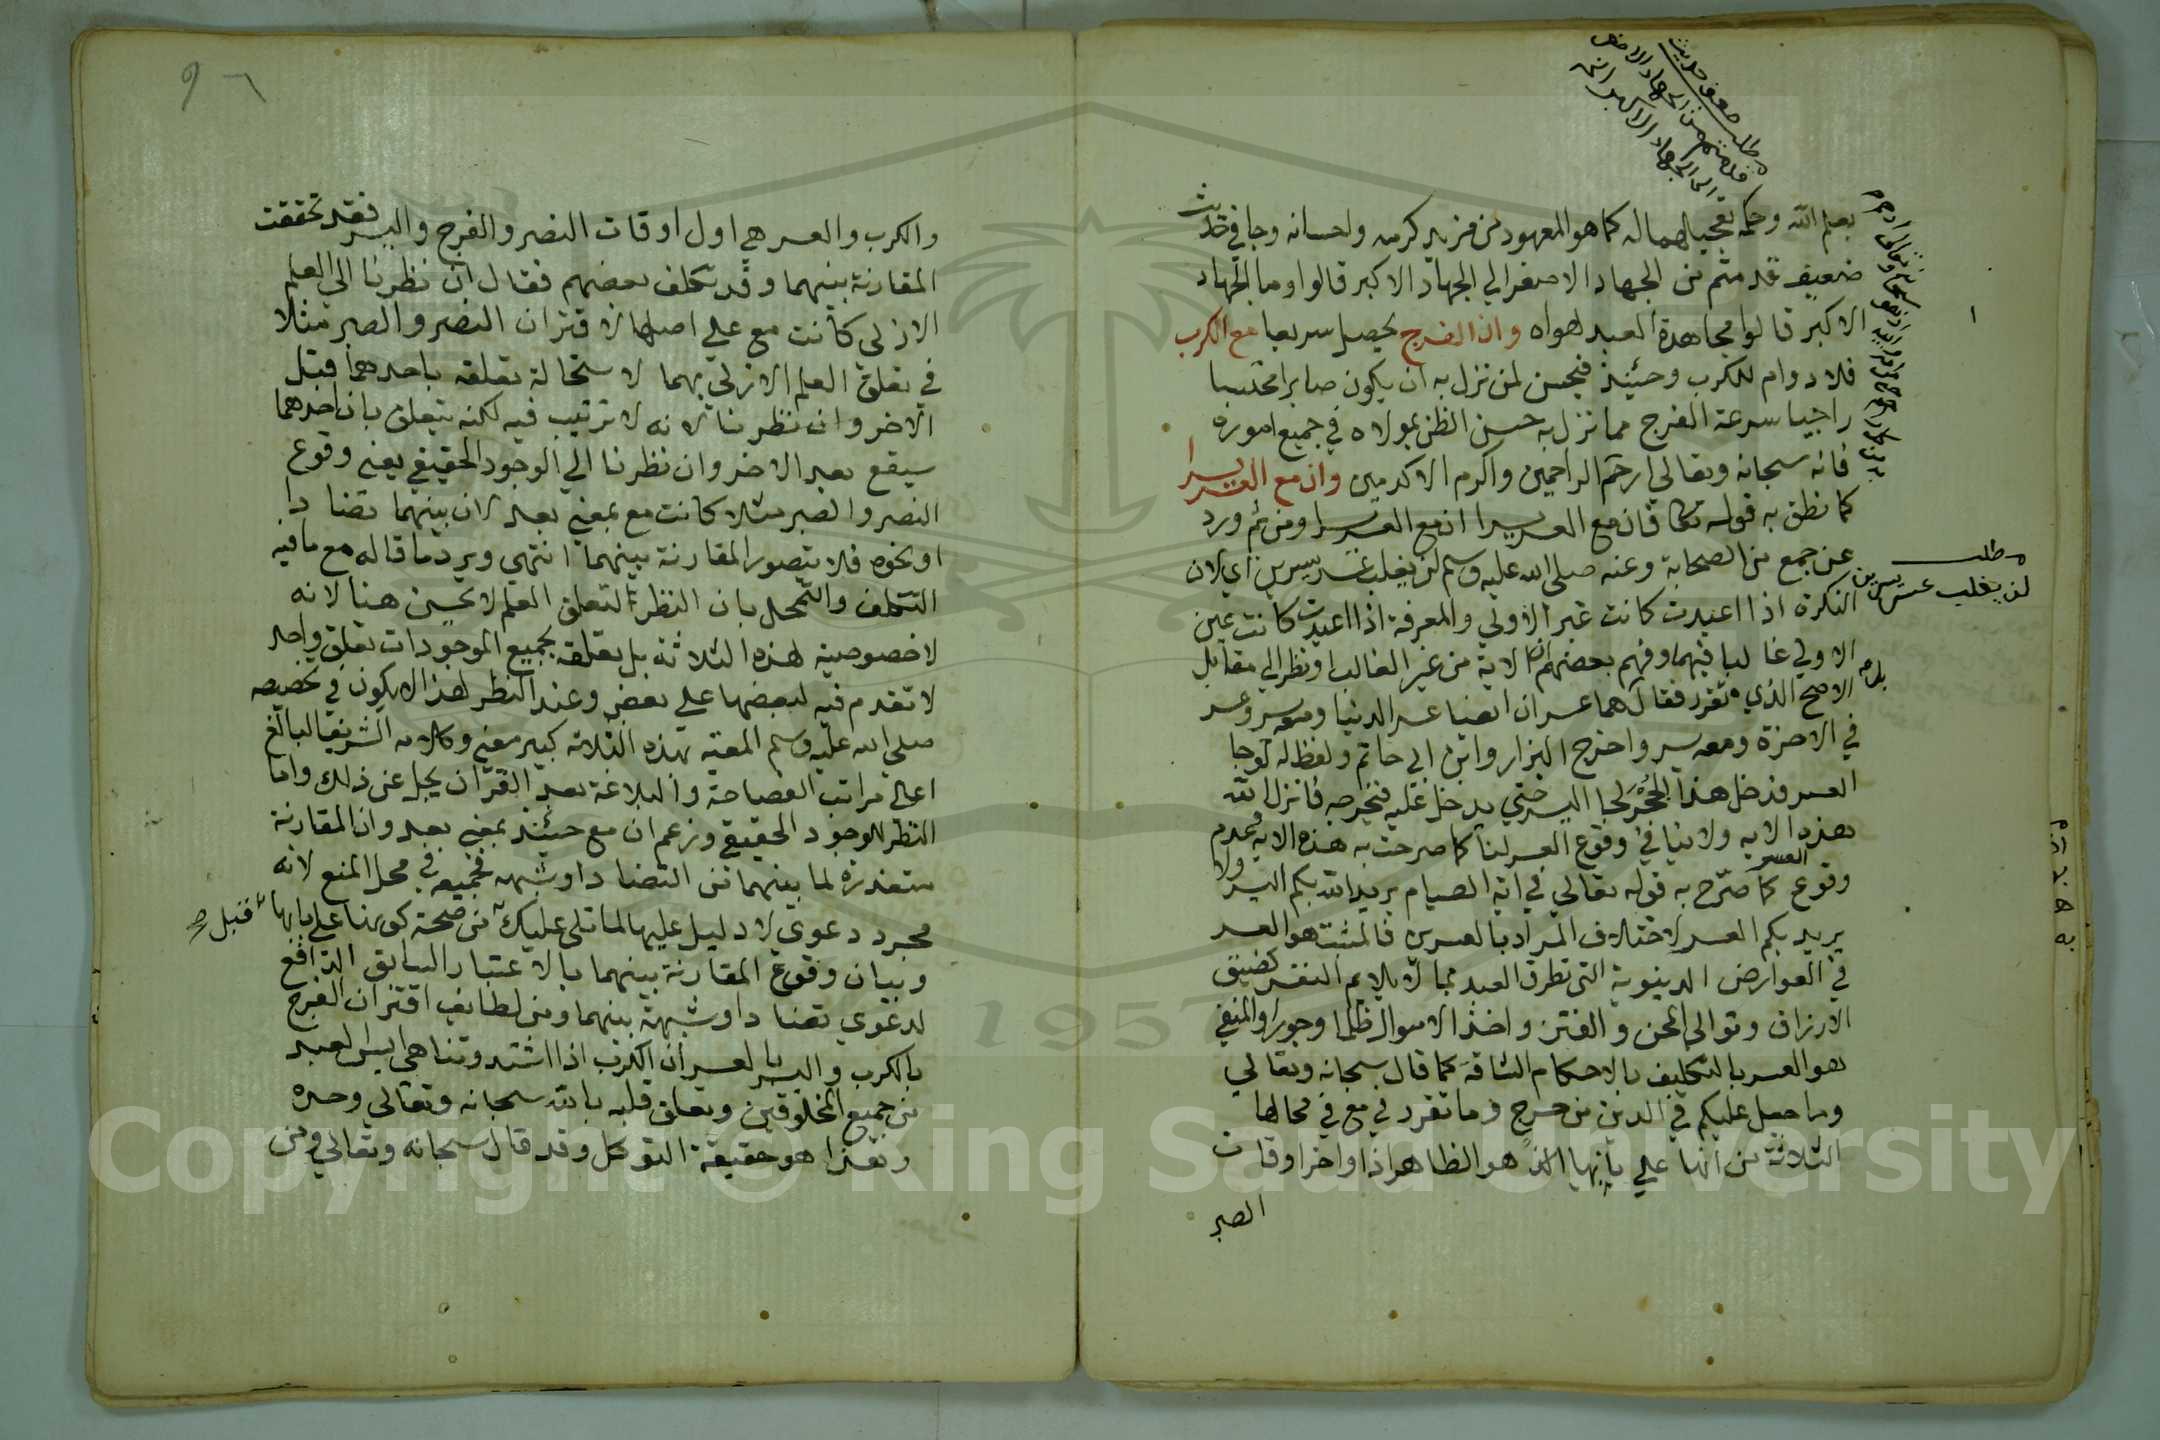 مطلب معنى حديث
قدمتم من الجهاد الاصغر
الى الجهاد الاكبر
بعلم الله وحكمه تعجيلهما له كما هو المعهود من مزيد كرمه واحسانه وجا في حديث
ضعيف قدمتم من الجهاد الاصغر الي الجهاد الاكبر قالوا وما الجهاد
الاكبر قالوا مجاهدة العبد لهواه وان الفرج يحصل سريعا مع الكرب
فلا دوام للكرب وحينئذ فيحسن لمن نزل به ان يكون صابرا محتسبا
راجيا سرعة الفرج مما نزل به حسن الظن بمولاه في جميع اموره
فانه سبحانه وتعالي ارحم الراحمين واكرم الاكرمين وان مع العسر يسرا
كما نطق به قوله تعالي فان مع العسر يسرا ان مع العسر يسرا ومن ثم ورد
عن جمع من الصحابة وعنه صلي الله عليه وسلم لن يغلب عسر يسرين اي لان
مطلب
لن يغلب عسر يسرين
النكرة اذا اعيدت كانت غير الاولي والمعرفة اذا اعيدت كانت عين
الاولي غالبا فيهما وفهم بعضهم ان الاية من غير الغالب او نظر الي مقابل
الاصح الذي تقرر فقال هما عسران ايضا عسر الدنيا ومعه يسر وعسر
في الاخرة ومعه يسر واخرج البزار وابن ابي حاتم ولفظ له لو جا
العسر فدخل هذا الجحر لجا اليسر حتي يدخل عليه فيخرجه فانزل الله
هذه الاية ولا ينافي وقوع العسر لنا كما صرحت به هذه الاية عدم
وقوع العسر كما صرح به قوله تعالي في اية الصيام يريد الله بكم اليسر ولا
يريد بكم العسر لاختلاف المراد بالعسرين فالمثبت هو العسر
في العوارض الدنيوية التي تطرق العبد مما لا يلايم النفس كضيق
الارزاق وتوالي المحن والفتن واخذ الاموال ظلما وجورا والمنفي
هو العسر بالتكليف بالاحكام الشاقة كما قال سبحانه وتعالي
وما جعل عليكم في الدين من حرج وما تقرر في مع في محالها
الثلاثة من انها علي بابها هو الظاهر اذ اواخر اوقات
الصبر
والكرب والعسر هي اول اوقات النصر والفرج واليسر فقد تحققت
المقارنة بينهما وقد تكلف بعضهم فقال ان نظرنا الي العلم
الازلي كانت مع علي اصلها لاقتران النصر والصبر مثلا
في تعلق العلم الازلي بهما لاستحالة تعلقه باحدهما قبل
الاخر وان نظرنا لانه لا ترتيب فيه لكنه يتعلق بان احدهما
سيقع بعد الاخر وان نظرنا الي الوجود الحقيقي يعني وقوع
النصر والصبر مثلا كانت مع بمعني بعد لان بينهما تضادا
او نحوه فلا يتصور المقارنة بينهما انتهي ويرد ما قاله مع ما فيه
التكلف والتمحل بان النظر لتعلق العلم لا يحسن هنا لانه
لا خصوصية لهذه الثلاثة بل تعلقه بجميع الموجودات تعلق واحد
لا تقدم فيه لبعضها علي بعض وعند النظر لهذا لا يكون في تخصيصه
صلي الله عليه وسلم المعية بهذه الثلاثة كبير معني وكلامه الشريف البالغ
اعلي مراتب الفصاحة والبلاغة بعد القران يجل عن ذلك واما
النظر للوجود الحقيقي وزعم ان مع حينئذ بمعني بعد وان المقارنة
متعذرة لما بينهما من التضاد او شبهه فجميعه في محل المنع لانه
مجرد دعوي لا دليل عليها لما تلي عليك من صحة كونها علي بابها
قبل صح
وبيان وقوع المقارنة بينهما بالاعتبار السابق الدافع
لدعوي تضاد او شبهه بينهما ومن لطايف اقتران الفرج
بالكرب واليسر بالعسر ان الكرب اذا اشتد وتناهي ايس العبد
من جميع المخلوقين وتعلق قلبه بالله سبحانه وتعالي وحده
وهذا هو حقيقة التوكل وقد قال سبحانه وتعالي ومن
Copyright © King Saud University
1957